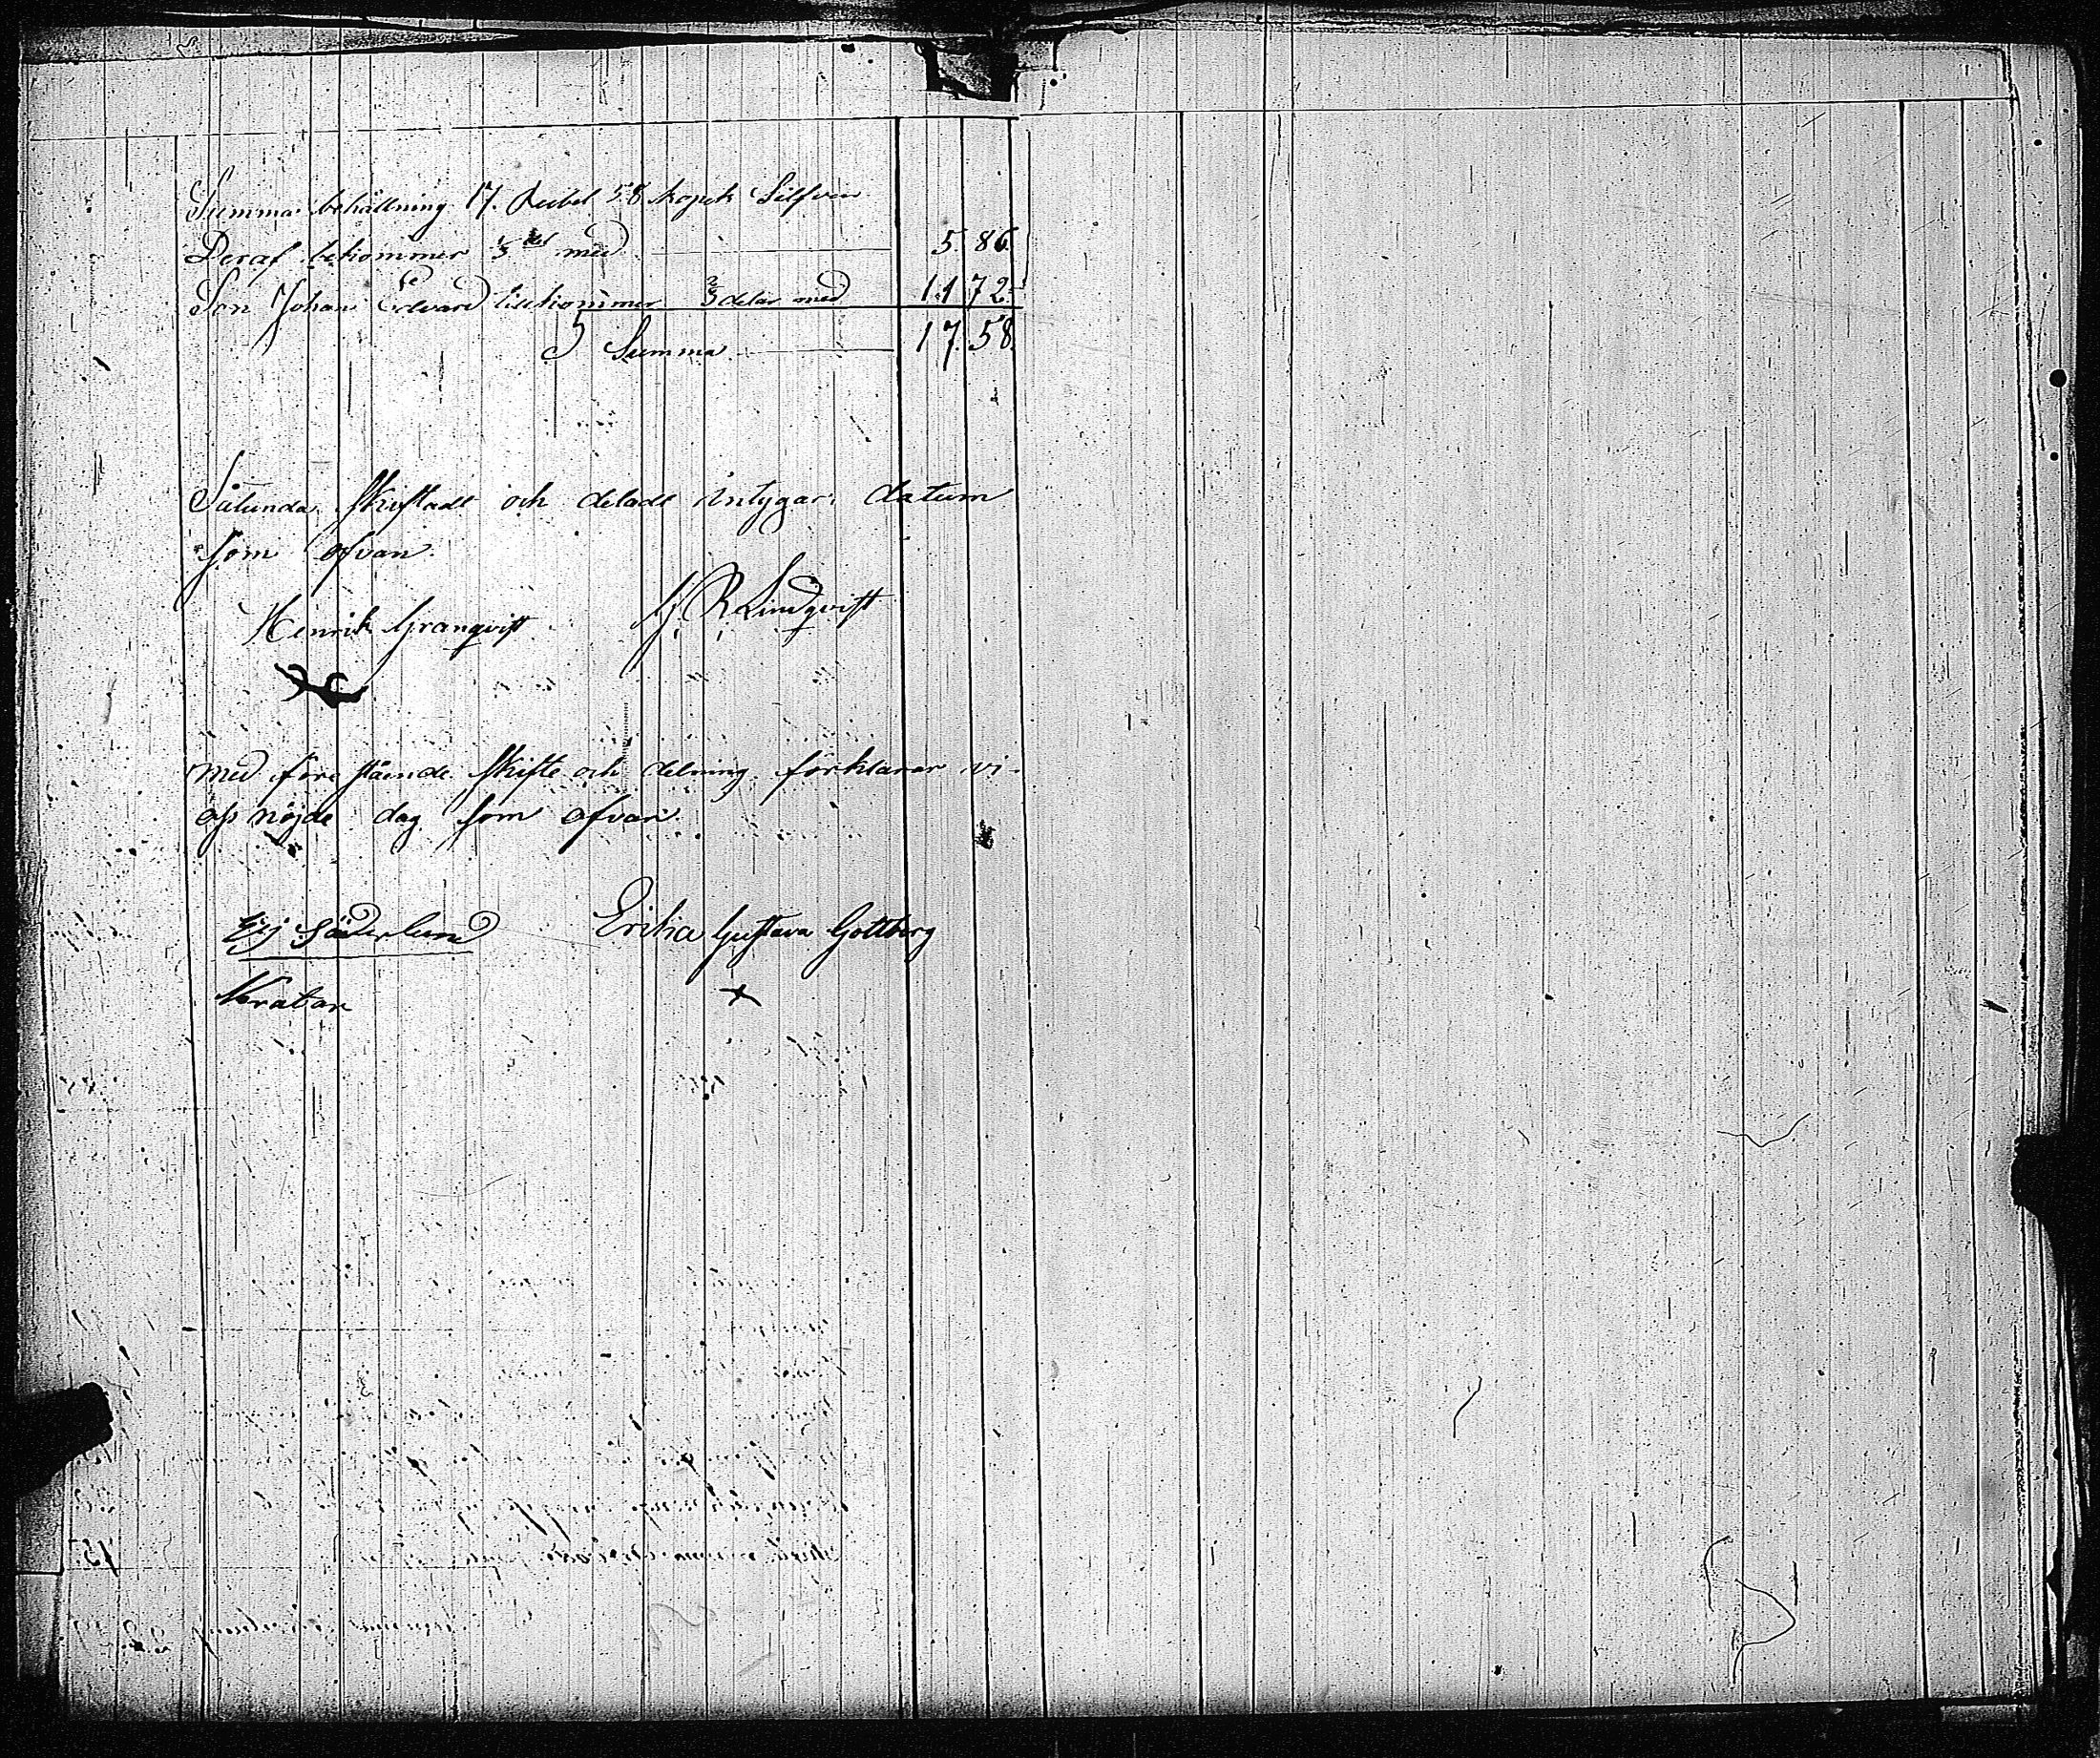 Summa behållning 17. Rubel 58 kopek Silfver
Deraf bekommer 1/3 del med 5 86
Son Johan Edvard tillkommer 2/3 delar med 11 72
Summa 17. 58.
Sålunda skiftadt och deladt intygar datum
som ofvan.
Henrik Granqvist R Lindqvist
med före stående skifte och delning förklarar vi
oss nöjde dag som ofvan
Söderlund Erika Gustava Gottberg
x